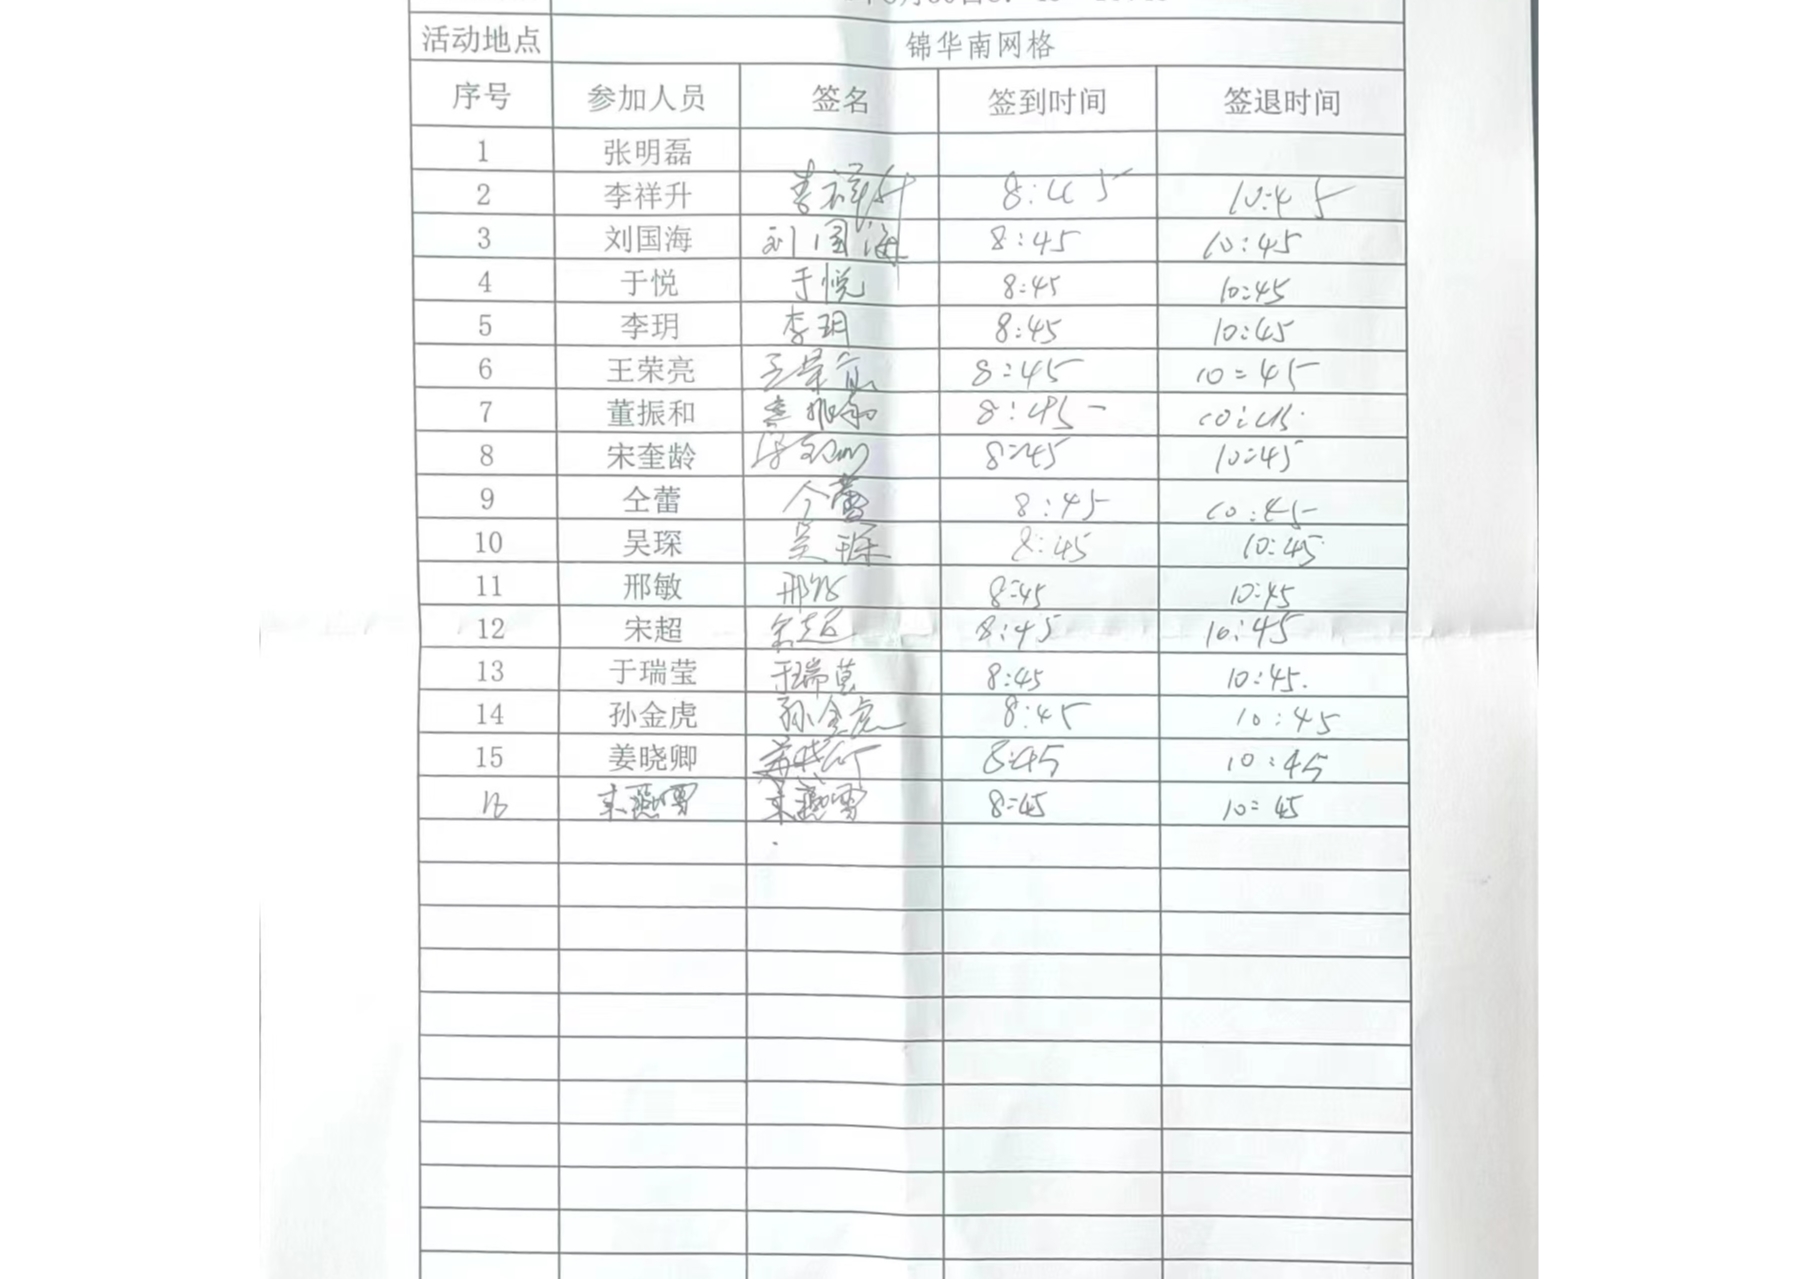 活动地点 锦华南网格
序号 参加人员 签名 签到时间 签退时间
1 张明磊
2 李祥升 李祥升 8:45 10:45
3 刘国海 刘国海 8:45 10:45
4 于悦 于悦 8:45 10:45
5 李玥 李玥 8:45 10:45
6 王荣亮 王荣亮 8:45 10:45
7 董振和 董振和 8:45 10:45
8 宋奎龄 8:45 10:45
9 仝蕾 仝蕾 8:45 10:45
10 吴琛 吴琛 8:45 10:45
11 邢敏 邢敏 8:45 10:45
12 宋超 宋超 8:45 10:45
13 于瑞莹 于瑞莹 8:45 10:45.
14 孙金虎 孙金虎 8:45 10:45
15 姜晓卿 姜晓卿 8:45 10:45
16 8:45 10:45